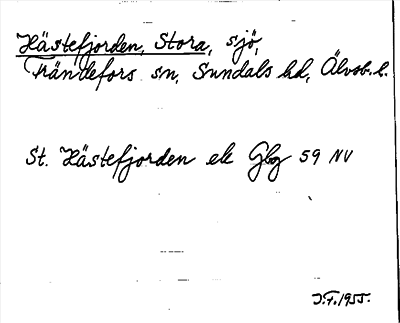 Hästefjorden, Stora, sjö,
Frändefors sn, Sundals hd, Älvsb. l.
St. Hästefjorden ek Gbg 59 NV
J.F. 1955.